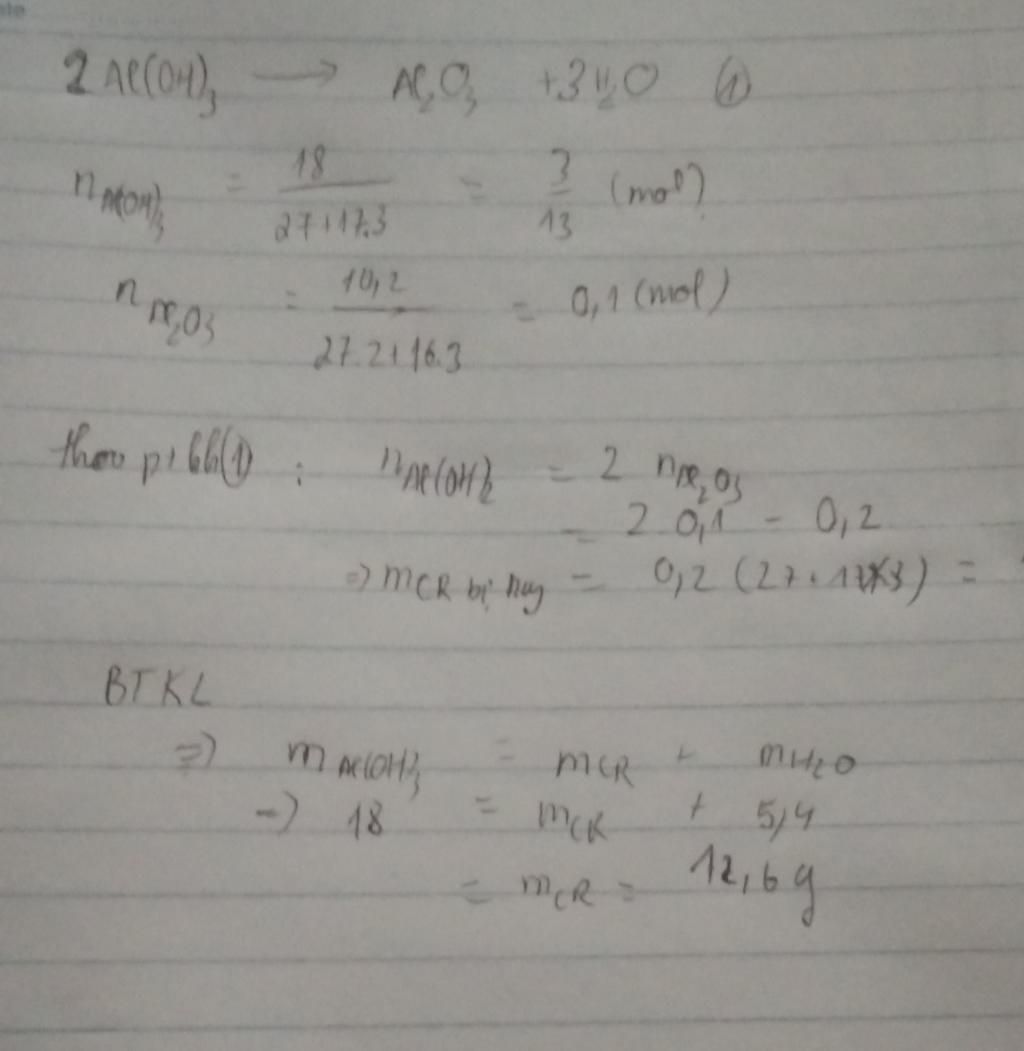 2Al(OH)₃ → Al₂O₃ + 3H₂O (1)
n Al(OH)₃ = 18 / 27+17.3 = 3/13 (mol)
n Al₂O₃ = 10,2 / 27.2+16.3 = 0,1 (mol)
theo pthh(1) : n Al(OH)₃ = 2 n Al₂O₃
= 2 0,1 = 0,2
=> m CR bị = 0,2 (27+17×3) =
BTKL
=> m Al(OH)₃ = m CR + m H₂O
-> 18 = m CR + 5,4
= m CR = 12,6 g